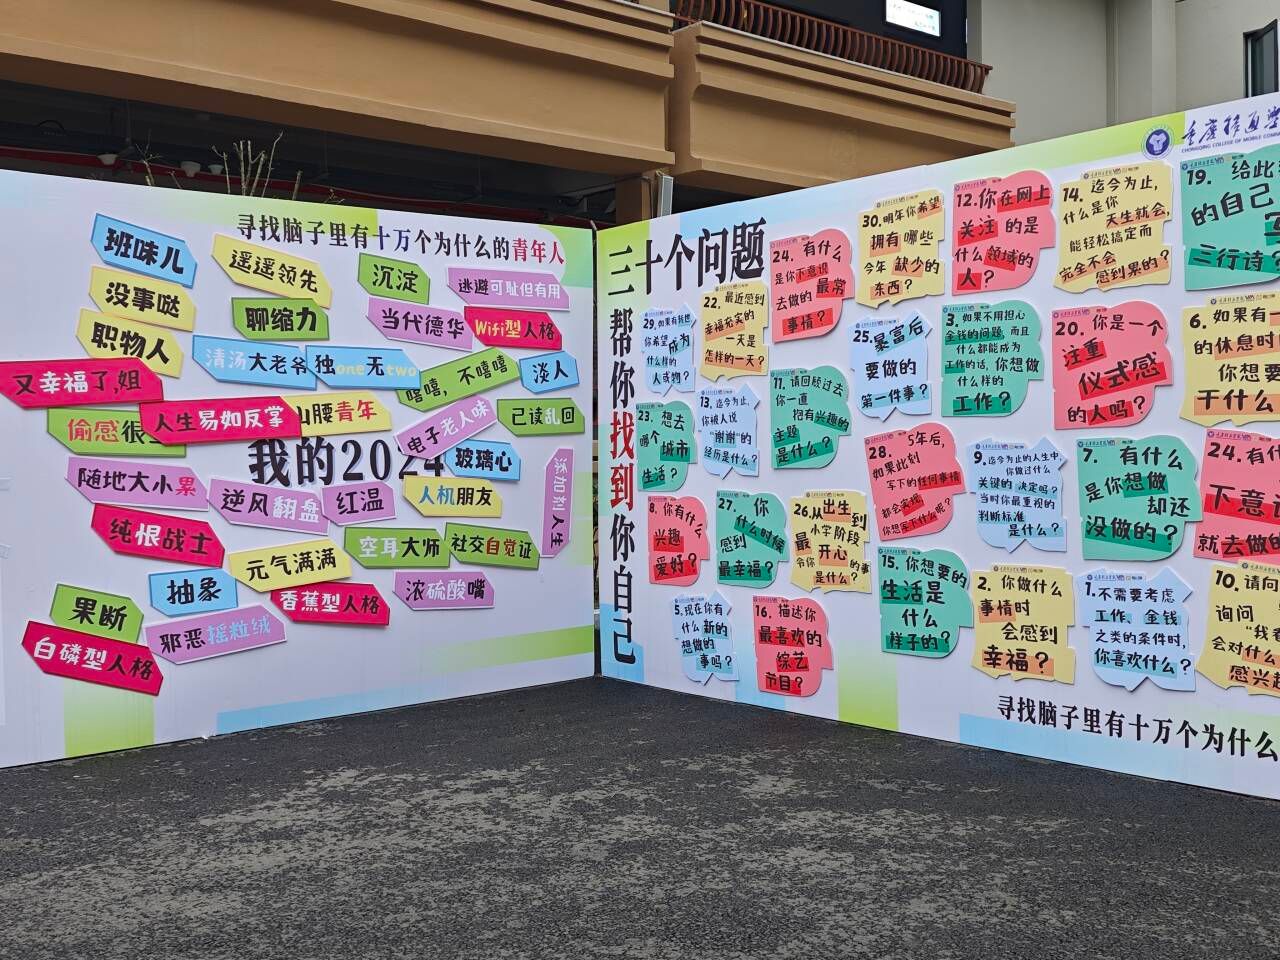 寻找脑子里有十万个为什么的青年人
班味儿
遥遥领先
沉淀
逃避可耻但有用
没事哒
聊缩力
当代德华
Wifi型人格
职物人
清汤大老爷
独one无two
嘻嘻,不嘻嘻
淡人
又幸福了,姐
偷感很
人生易如反掌
山腰青年
电子老人味
已读乱回
我的2024
玻璃心
随地大小累
逆风翻盘
红温
人机朋友
添加剂人生
纯恨战士
空耳大师
社交自觉证
元气满满
抽象
香蕉型人格
浓硫酸嘴
果断
邪恶摇粒绒
白磷型人格
三十个问题
帮你找到你自己
重庆移通学
CHONGQING COLLEGE OF MOBILE
30. 明年你希望
拥有哪些
今年缺少的
东西?
12.你在网上
关注的是
什么领域的
人?
14. 迄今为止,
什么是你
天生就会,
能轻松搞定而
完全不会
感到累的?
19. 给此
的自己
三行诗?
24. 有什么
是你下意识
去做的最常
事情?
22. 最近感到
幸福充实的
一天是
怎样的一天?
29. 如果有
你希望成为
什么样的
人或物?
25. 暴富后
要做的
第一件事?
3. 如果不用担心
金钱的问题,而且
什么都能成为
工作的话,你想做
什么样的
工作?
20. 你是一个
注重
仪式感
的人吗?
6. 如果有一
的休息时
你想要
干什么
23. 想去
哪个城市
生活?
13. 迄今为止,
你被人说
“谢谢”的
经历是什么?
11. 请回顾过去
你一直
抱有兴趣的
主题
是什么?
28. 5年后,
如果此刻
写下的任何事情
都会实现
你想写下什么呢?
9. 迄今为止的人生中,
你做过什么
关键的决定吗?
当时你最重视的
判断标准
是什么?
7. 有什么
是你想做
却还
没做的?
24. 有什
下意识
就去做的
8. 你有什么
兴趣
爱好?
27. 你
什么时候
感到
最幸福?
26. 从出生到
小学阶段
最开心的事
令你
是什么?
15. 你想要的
生活是
什么
样子的?
2. 你做什么
事情时
会感到
幸福?
1. 不需要考虑
工作、金钱
之类的条件时,
你喜欢什么?
10. 请向
询问 “我
会对什么
感兴趣
5. 现在你有
什么新的
想做的
事吗?
16. 描述你
最喜欢的
综艺
节目?
寻找脑子里有十万个为什么